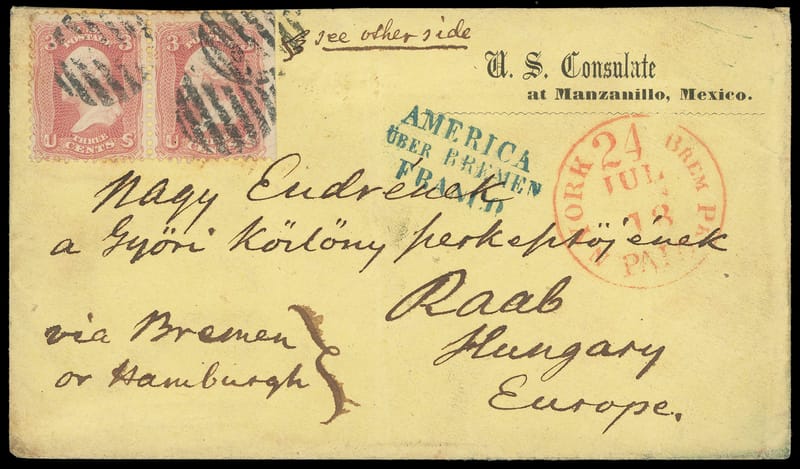 3 POSTAGE 3
U THREE CENTS S
3 3
U
see other side
U. S. Consulate
at Manzanillo, Mexico.
AMERICA
ÜBER BREMEN
FRANCO
N YORK BREM PK
24
JUL
18
PAID
Nagy Endrének
a Győri Közlöny szerkesztőjének
Raab
Hungary
Europe.
via Bremen
or Hamburgh